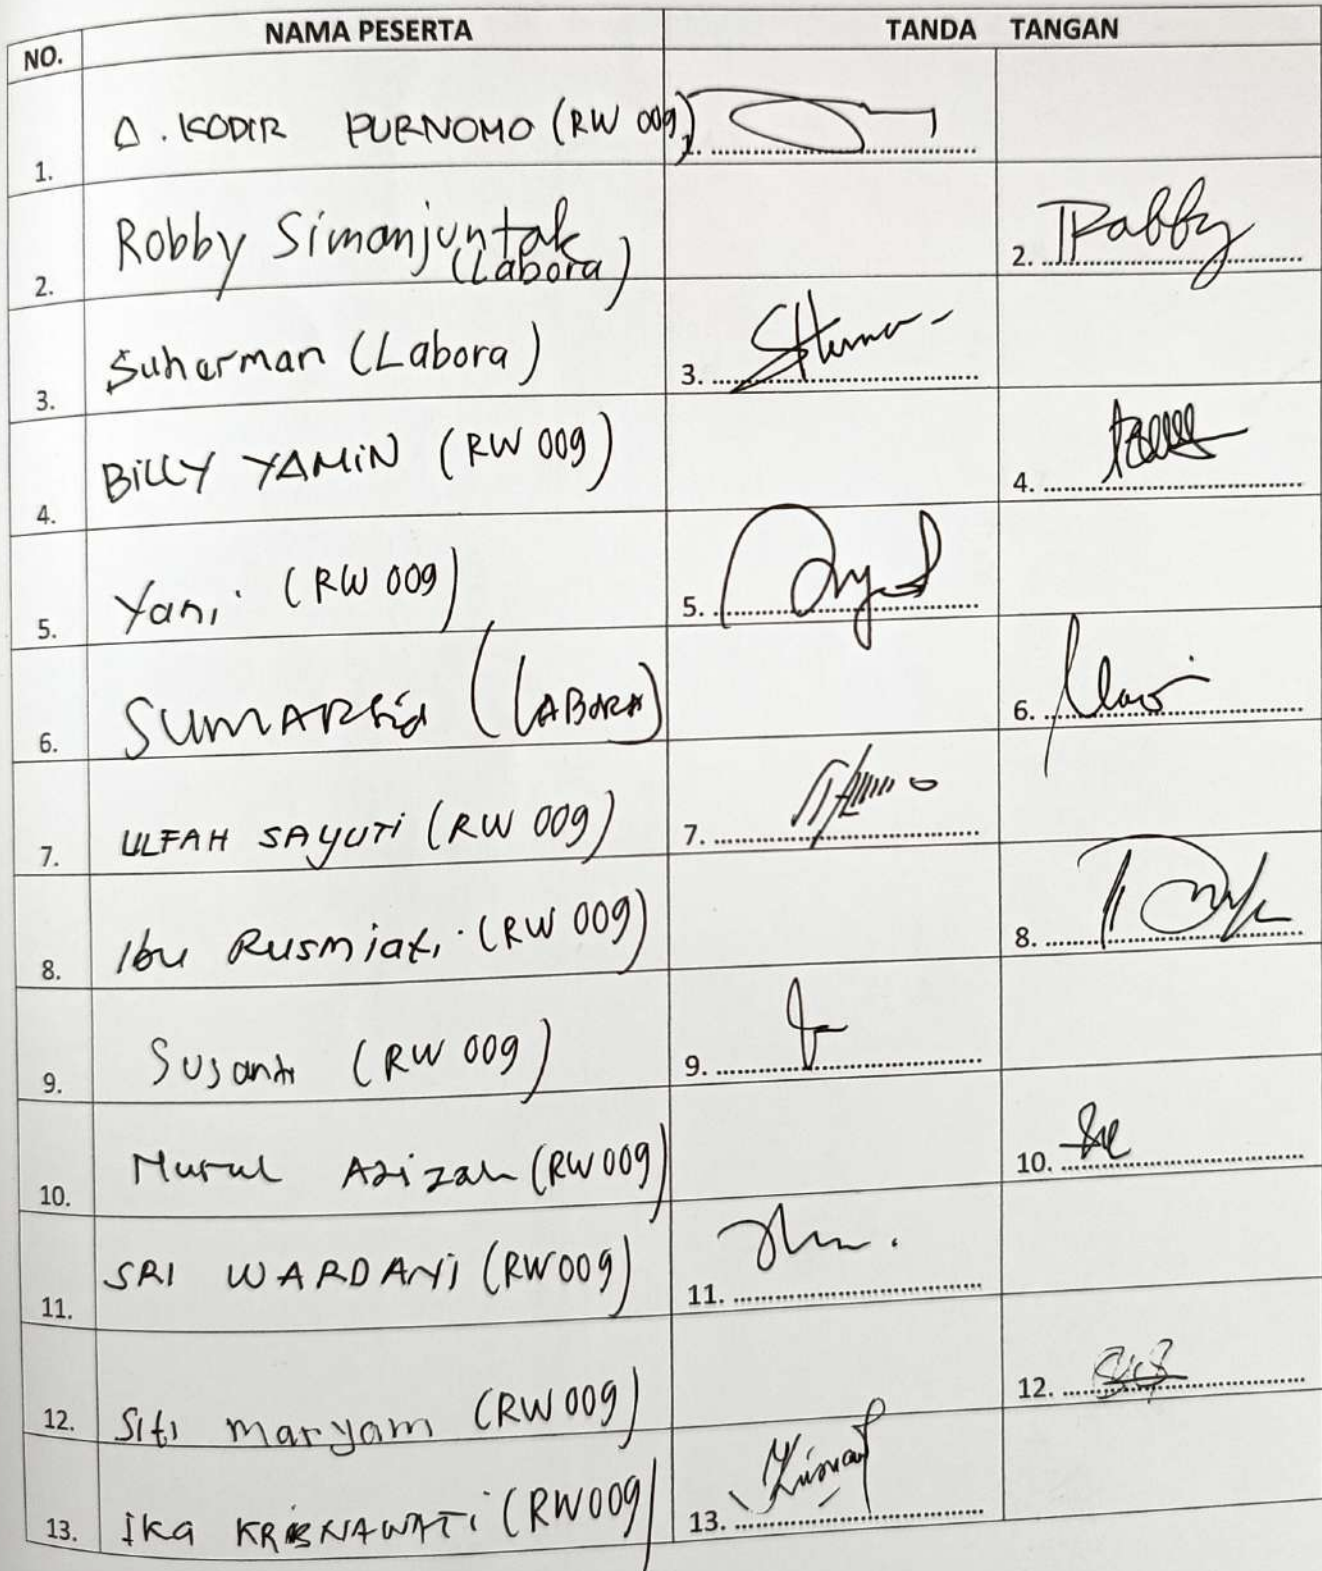 NO. NAMA PESERTA TANDA TANGAN
1. A. KODIR PURNOMO (RW 009) 1. ........
2. Robby Simanjuntak 2. ........ Robby
(Labora)
3. Suherman (Labora) 3. ........
4. BILLY YAMIN (RW 009) 4. ........
5. Yani (RW 009) 5. ........
6. SUMARSid (LABORA) 6. ........
7. ULFAH SAYUTI (RW 009) 7. ........
8. Ibu Rusmiati (RW 009) 8. ........
9. Susanti (RW 009) 9. ........
10. Nurul Azizah (RW 009) 10. ........
11. SRI WARDANI (RW009) 11. ........
12. Siti maryam (RW 009) 12. ........
13. Ika KRISNAWATI (RW009) 13. ........